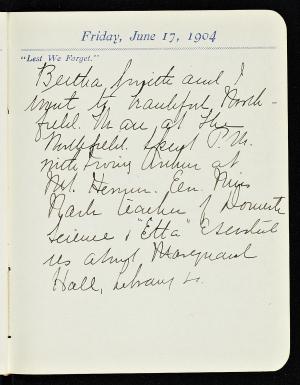 Friday, June 17, 1904
"Lest We Forget."
Bertha Smith and I
went to beautiful North-
field. M are at the
Northfield. Spent P.M.
with Irving Arthur at
Mt. Hermon. Eve. Miss
Mark teacher of Domestic
Science & "Etta" Escorted
us about Marquand
Hall, Library